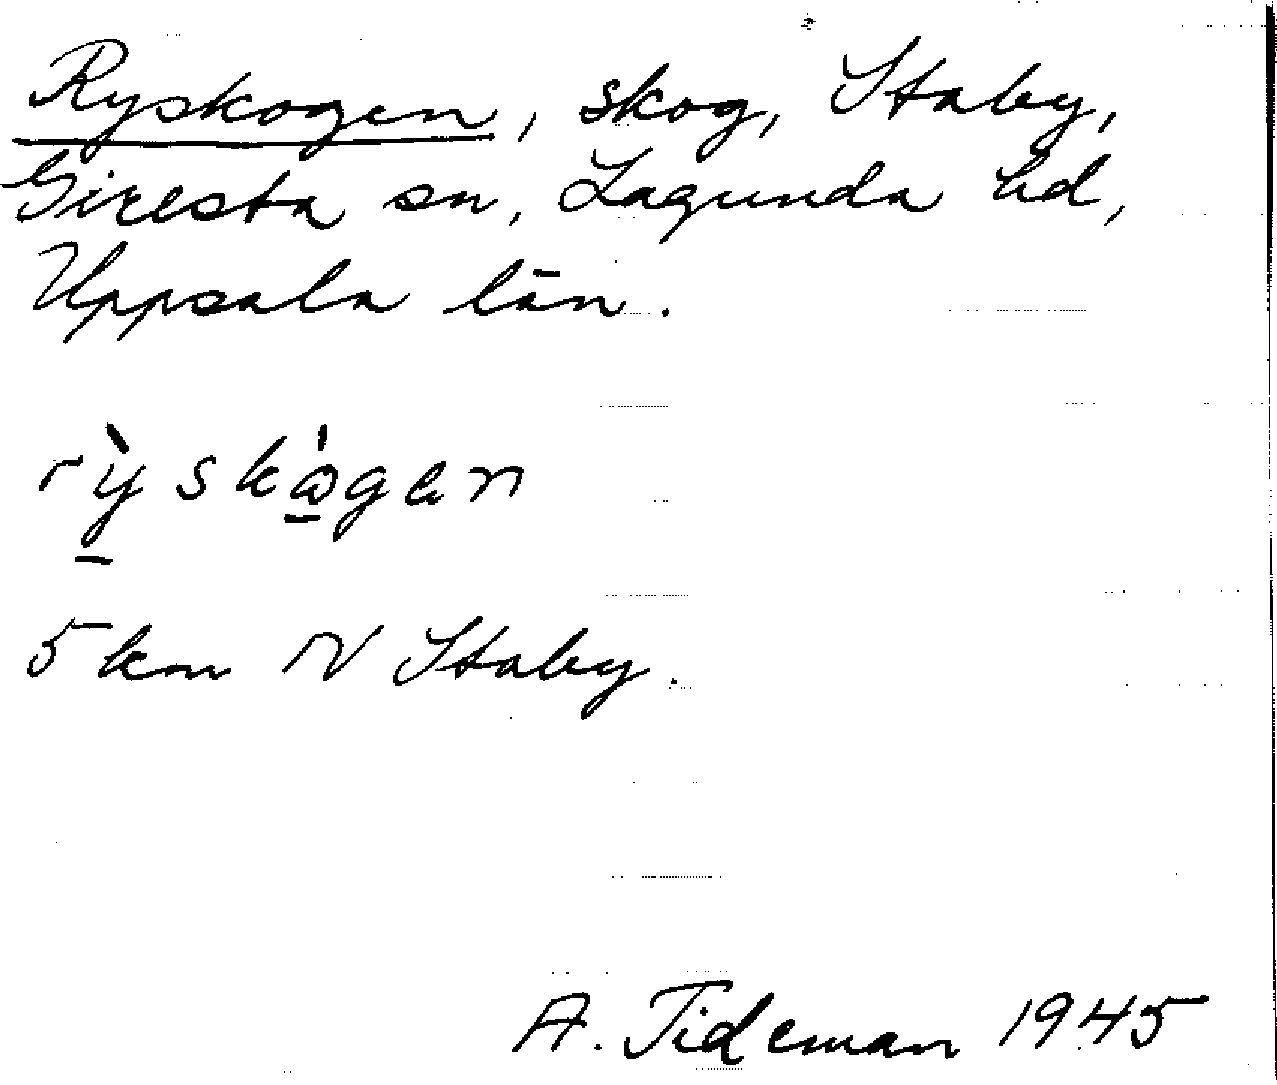 Ryskogen, skog, Staby,
Giresta sn, Lagunda hd,
Uppsala län.
rỳ̱skò̱gen
5 km N Staby.
A. Tideman 1945